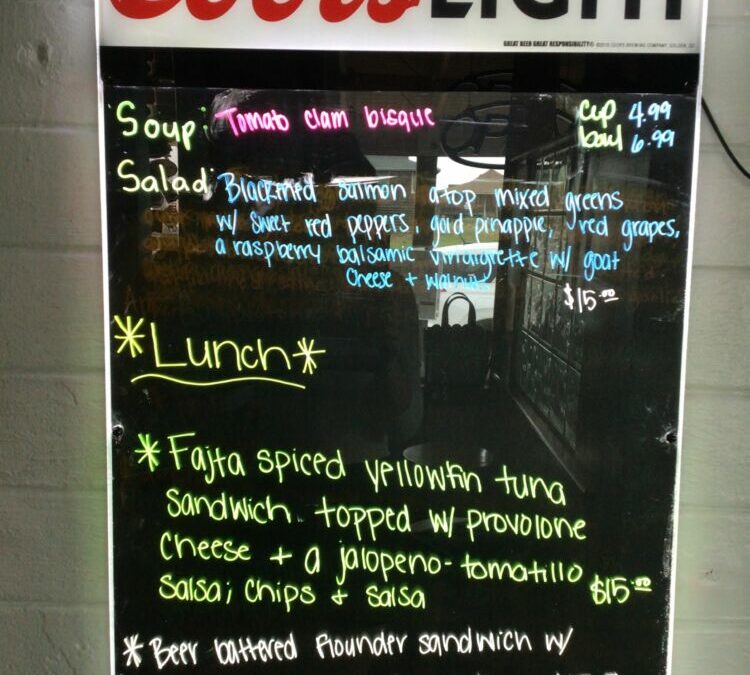 Coors LIGHT
GREAT BEER GREAT RESPONSIBILITY®
Soup: Tomato clam bisque cup 4.99
bowl 6.99
Salad: Blackened salmon atop mixed greens
w/ sweet red peppers, gold pinapple, red grapes,
a raspberry balsamic vinaigrette w/ goat
cheese + walnuts
$15.00
*Lunch*
* Fajta spiced yellowfin tuna
sandwich topped w/ provolone
cheese + a jalopeno-tomatillo
salsa; chips + salsa $15.00
* Beer battered flounder sandwich w/